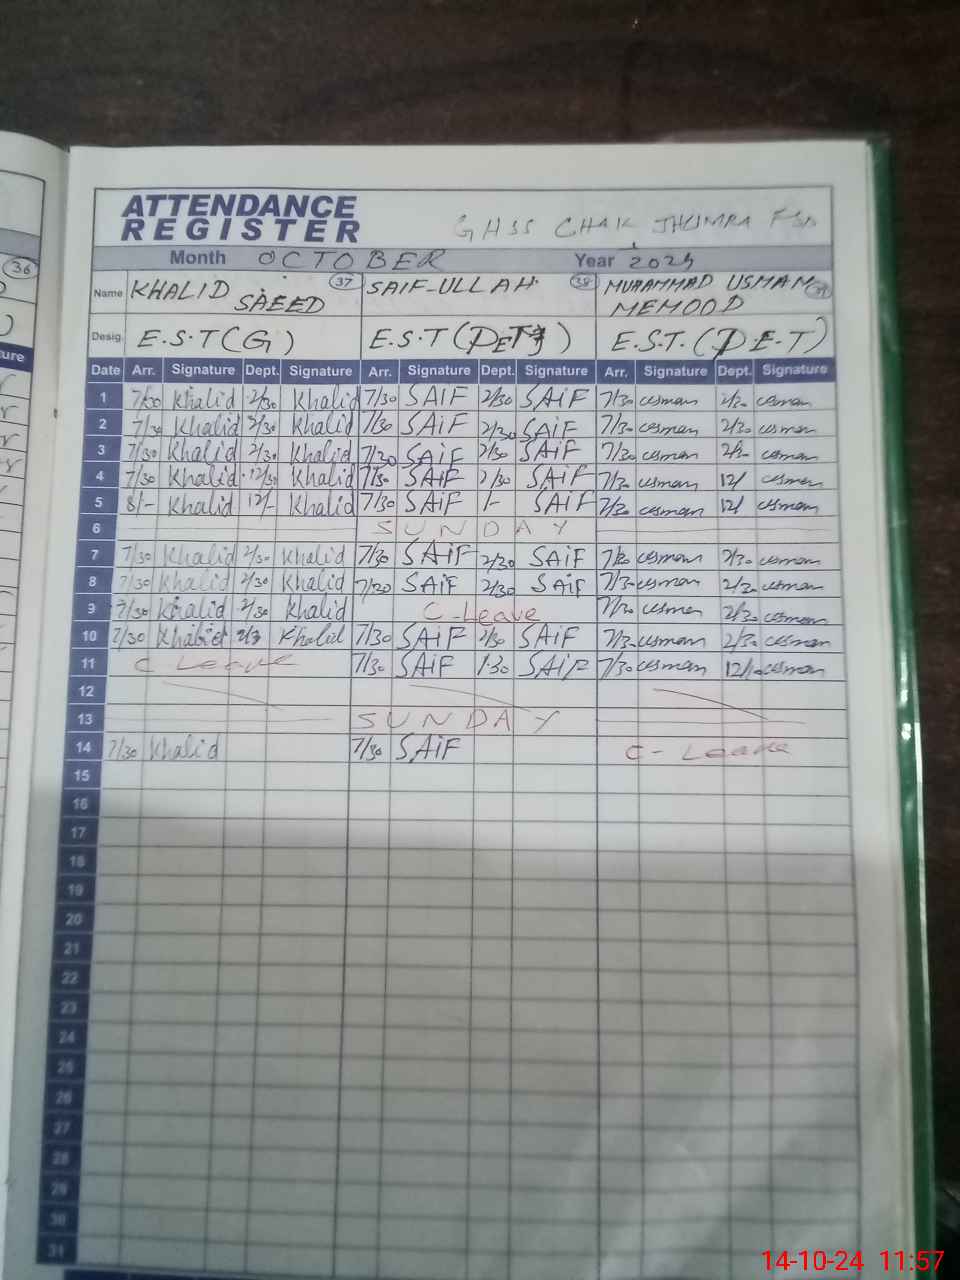 ATTENDANCE
REGISTER
GHSS CHAK JHUMRA FSD
Month OCTOBER Year 2024
36
Name KHALID SAEED 37 SAIF-ULLAH 38 MUHAMMAD USMAN MEMOOD 39
Desig. E.S.T (G) E.S.T (DET) E.S.T. (DE.T)
ure
Date Arr. Signature Dept. Signature Arr. Signature Dept. Signature Arr. Signature Dept. Signature
1 7/30 Khalid 2/30 Khalid 7/30 SAIF 2/30 SAIF 7/30 usman 2/30 usman
2 7/30 Khalid 2/30 Khalid 7/30 SAIF 2/30 SAIF 7/30 usman 2/30 usman
3 7/30 Khalid 2/30 Khalid 7/30 SAIF 2/30 SAIF 7/30 usman 2/30 usman
4 7/30 Khalid 12/30 Khalid 7/30 SAIF 2/30 SAIF 7/30 usman 12/ usman
5 8/- Khalid 12/- Khalid 7/30 SAIF 1/- SAIF 7/30 usman 12/ usman
6 SUNDAY
7 7/30 Khalid 2/30 Khalid 7/30 SAIF 2/30 SAIF 7/30 usman 2/30 usman
8 7/30 Khalid 2/30 Khalid 7/30 SAIF 2/30 SAIF 7/30 usman 2/30 usman
9 7/30 Khalid 2/30 Khalid C-Leave 7/30 usman 2/30 usman
10 7/30 Khalid 2/3 Khalid 7/30 SAIF 2/30 SAIF 7/30 usman 2/30 usman
11 C Leave 7/30 SAIF 1.30 SAIF 7/30 usman usman
12
13 SUNDAY
14 7/30 Khalid 7/30 SAIF C-Leave
15
16
17
18
19
20
21
22
23
24
25
26
27
28
29
30
31
14-10-24 11:57